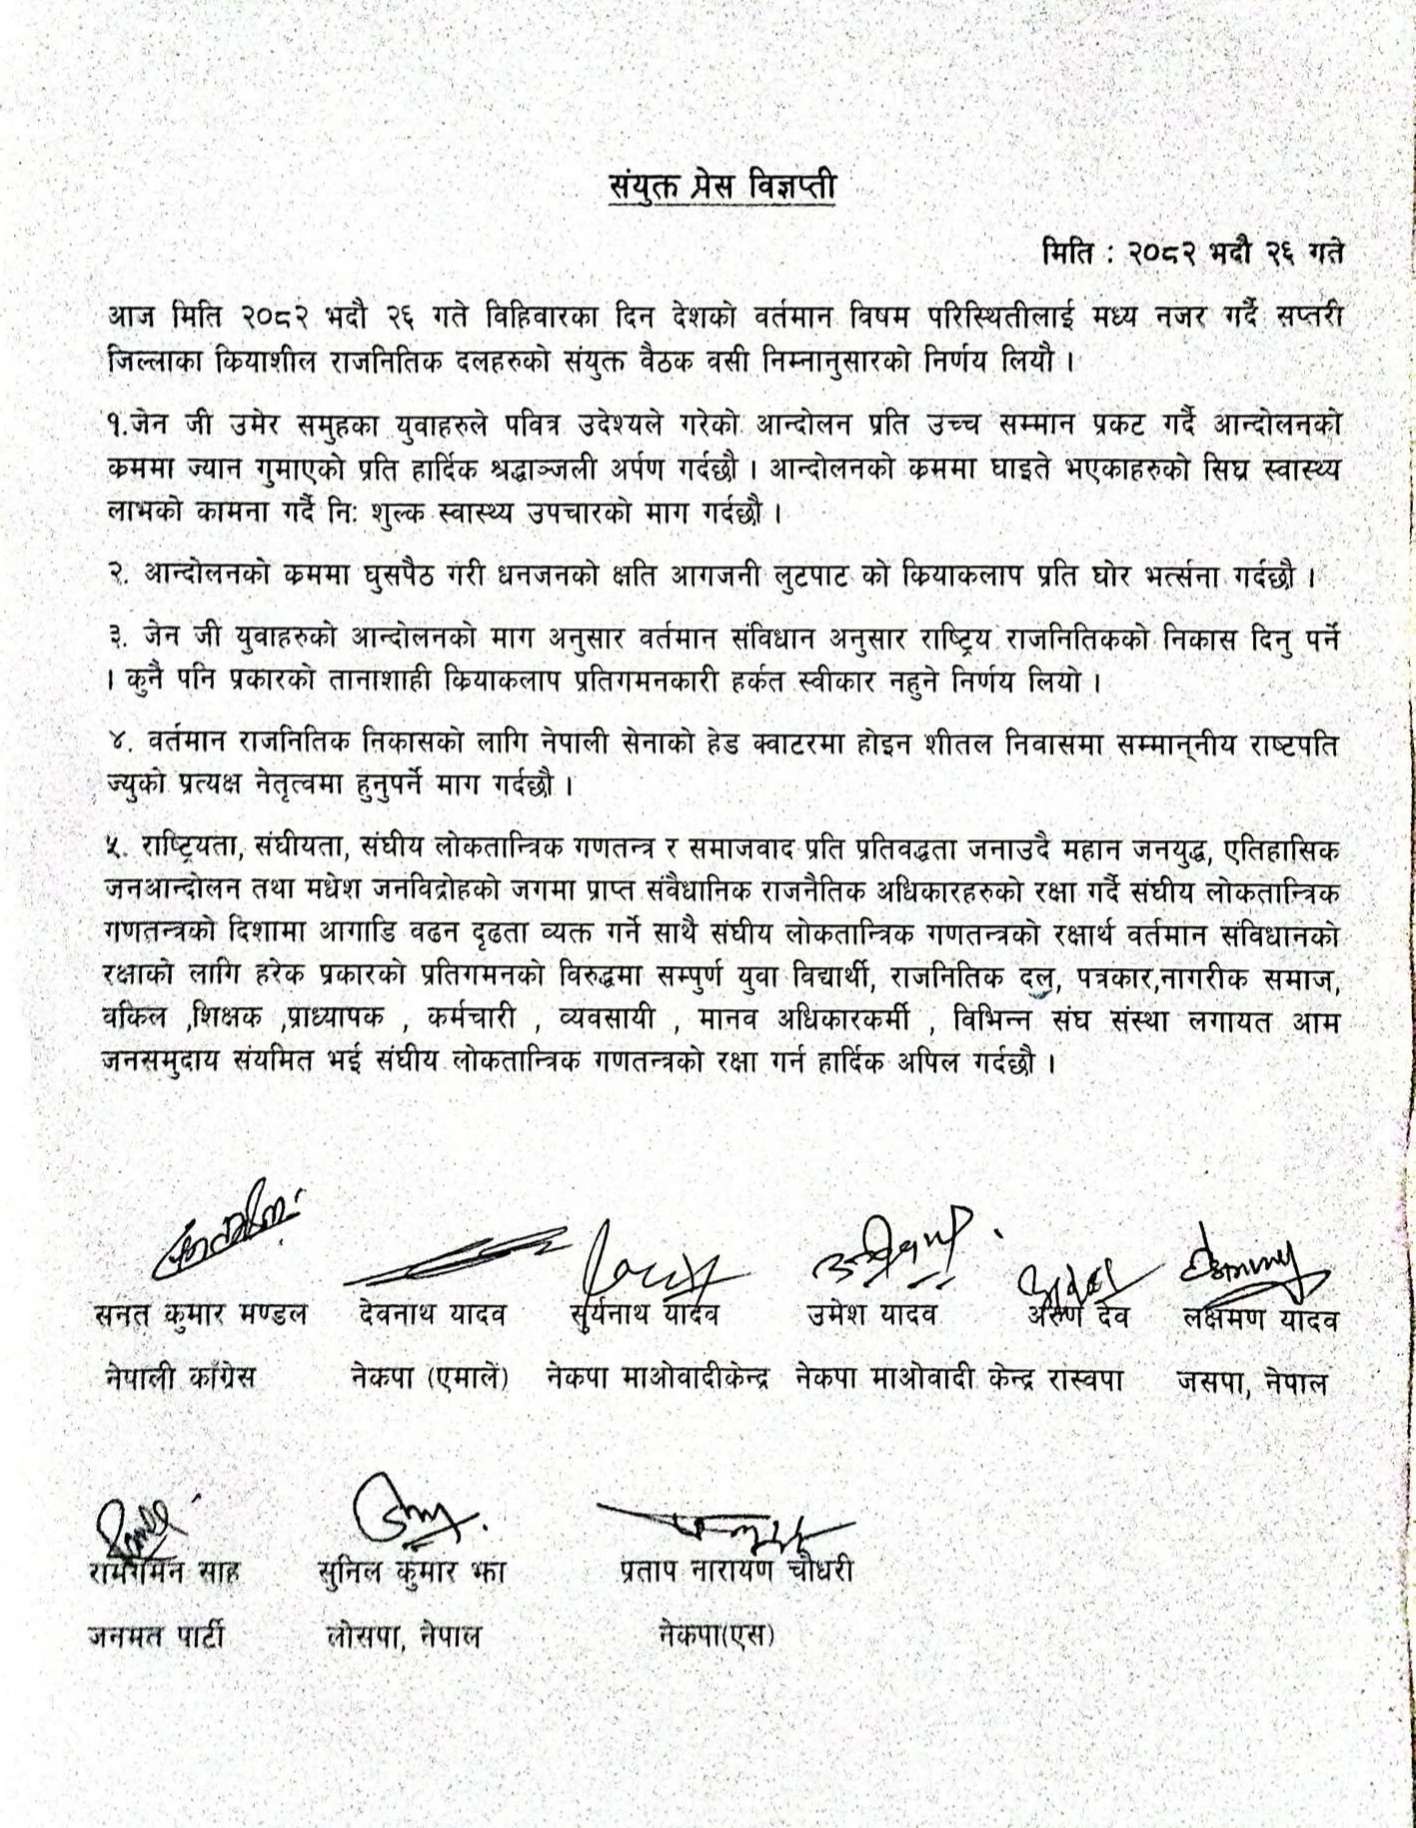 संयुक्त प्रेस विज्ञप्ती
मिति : २०८२ भदौ २६ गते
आज मिति २०८२ भदौ २६ गते विहिवारका दिन देशको वर्तमान विषम परिस्थितीलाई मध्य नजर गर्दै सप्तरी
जिल्लाका कियाशील राजनितिक दलहरुको संयुक्त वैठक वसी निम्नानुसारको निर्णय लियौ ।
१.जेन जी उमेर समुहका युवाहरुले पवित्र उदेश्यले गरेको आन्दोलन प्रति उच्च सम्मान प्रकट गर्दै आन्दोलनको
कममा ज्यान गुमाएको प्रति हार्दिक श्रद्धाञ्जली अर्पण गर्दछौ । आन्दोलनको कममा घाइते भएकाहरुको सिघ्र स्वास्थ्य
लाभको कामना गर्दै निः शुल्क स्वास्थ्य उपचारको माग गर्दछौ ।
२. आन्दोलनको कममा घुसपैठ गरी धनजनको क्षति आगजनी लुटपाट को कियाकलाप प्रति घोर भर्त्सना गर्दछौ ।
३. जेन जी युवाहरुको आन्दोलनको माग अनुसार वर्तमान संविधान अनुसार राष्ट्रिय राजनितिकको निकास दिनु पर्ने
। कुनै पनि प्रकारको तानाशाही कियाकलाप प्रतिगमनकारी हर्कत स्वीकार नहुने निर्णय लियो ।
४. वर्तमान राजनितिक निकासको लागि नेपाली सेनाको हेड क्वाटरमा होइन शीतल निवासमा सम्मान्‌नीय राष्टपति
ज्युको प्रत्यक्ष नेतृत्वमा हुनुपर्ने माग गर्दछौ ।
५. राष्ट्रियता, संघीयता, संघीय लोकतान्त्रिक गणतन्त्र र समाजवाद प्रति प्रतिवद्धता जनाउदै महान जनयुद्ध, एतिहासिक
जनआन्दोलन तथा मधेश जनविद्रोहको जगमा प्राप्त संवैधानिक राजनैतिक अधिकारहरुको रक्षा गर्दै संघीय लोकतान्त्रिक
गणतन्त्रको दिशामा आगाडि वढन दृढता व्यक्त गर्ने साथै संघीय लोकतान्त्रिक गणतन्त्रको रक्षार्थ वर्तमान संविधानको
रक्षाको लागि हरेक प्रकारको प्रतिगमनको विरुद्धमा सम्पुर्ण युवा विद्यार्थी, राजनितिक दल, पत्रकार,नागरीक समाज,
वकिल ,शिक्षक ,प्राध्यापक , कर्मचारी , व्यवसायी , मानव अधिकारकर्मी , विभिन्न संघ संस्था लगायत आम
जनसमुदाय संयमित भई संघीय लोकतान्त्रिक गणतन्त्रको रक्षा गर्न हार्दिक अपिल गर्दछौ ।
सनत कुमार मण्डल देवनाथ यादव सुर्यनाथ यादव उमेश यादव अरुण देव लक्षमण यादव
नेपाली काँग्रेस नेकपा (एमाले) नेकपा माओवादीकेन्द्र नेकपा माओवादी केन्द्र रास्वपा जसपा, नेपाल
रामगमन साह सुनिल कुमार झा प्रताप नारायण चौधरी
जनमत पार्टी लोसपा, नेपाल नेकपा(एस)